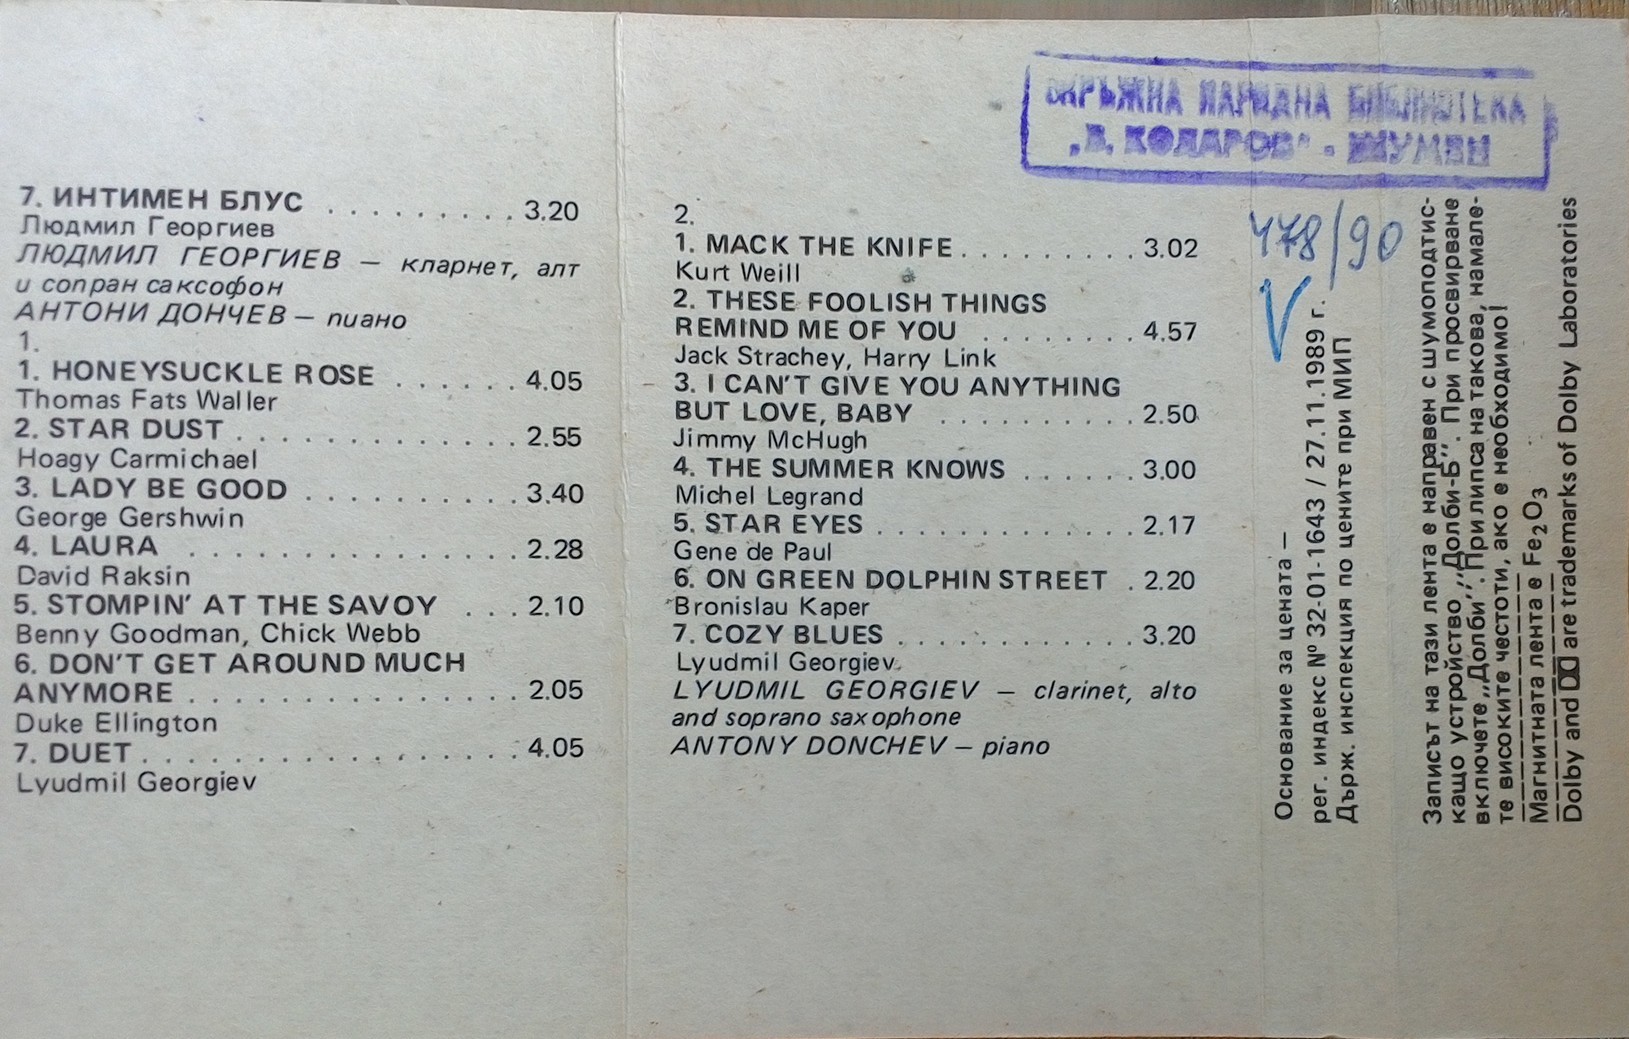 7. ИНТИМЕН БЛУС . . . . . . . . . 3.20
Людмил Георгиев
ЛЮДМИЛ ГЕОРГИЕВ – кларнет, алт
и сопран саксофон
АНТОНИ ДОНЧЕВ – пиано
1.
1. HONEYSUCKLE ROSE . . . . . . 4.05
Thomas Fats Waller
2. STAR DUST . . . . . . . . . . . . . . 2.55
Hoagy Carmichael
3. LADY BE GOOD . . . . . . . . . . . 3.40
George Gershwin
4. LAURA . . . . . . . . . . . . . . . . . 2.28
David Raksin
5. STOMPIN' AT THE SAVOY . . . 2.10
Benny Goodman, Chick Webb
6. DON'T GET AROUND MUCH
ANYMORE . . . . . . . . . . . . . . . . . 2.05
Duke Ellington
7. DUET . . . . . . . . . . . . . . . . . . . 4.05
Lyudmil Georgiev
2.
1. MACK THE KNIFE . . . . . . . . . . 3.02
Kurt Weill
2. THESE FOOLISH THINGS
REMIND ME OF YOU . . . . . . . . 4.57
Jack Strachey, Harry Link
3. I CAN'T GIVE YOU ANYTHING
BUT LOVE, BABY . . . . . . . . . . . 2.50
Jimmy McHugh
4. THE SUMMER KNOWS . . . . . . 3.00
Michel Legrand
5. STAR EYES . . . . . . . . . . . . . . 2.17
Gene de Paul
6. ON GREEN DOLPHIN STREET . 2.20
Bronislau Kaper
7. COZY BLUES . . . . . . . . . . . . . 3.20
Lyudmil Georgiev
LYUDMIL GEORGIEV – clarinet, alto
and soprano saxophone
ANTONY DONCHEV – piano
ОКРЪЖНА НАРОДНА БИБЛИОТЕКА
„В. КОЛАРОВ" - ШУМЕН
478/90
Основание за цената –
рег. индекс № 32-01-1643 / 27.11.1989 г.
Държ. инспекция по цените при МИП
Записът на тази лента е направен с шумоподтис-
кащо устройство „Долби-Б". При просвирване
включете „Долби". При липса на такова, намале-
те високите честоти, ако е необходимо!
Магнитната лента е Fe₂O₃
Dolby and are trademarks of Dolby Laboratories